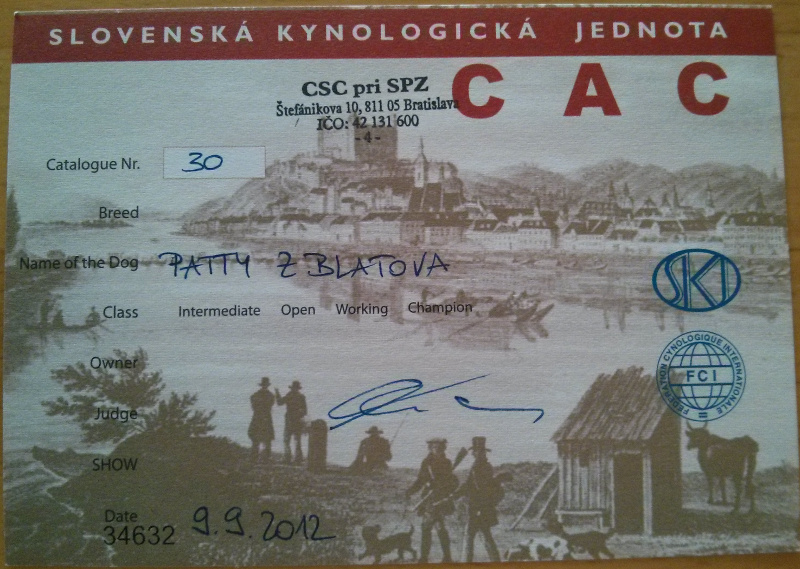 SLOVENSKÁ KYNOLOGICKÁ JEDNOTA
CAC
CSC pri SPZ
Štefánikova 10, 811 05 Bratislava
IČO: 42 131 600
- 4 -
Catalogue Nr. 30
Breed
Name of the Dog PATTY Z BLATOVA
SKJ
Class Intermediate Open Working Champion
Owner
FEDERATION CYNOLOGIQUE INTERNATIONALE
FCI
Judge
SHOW
Date 9.9.2012
34632